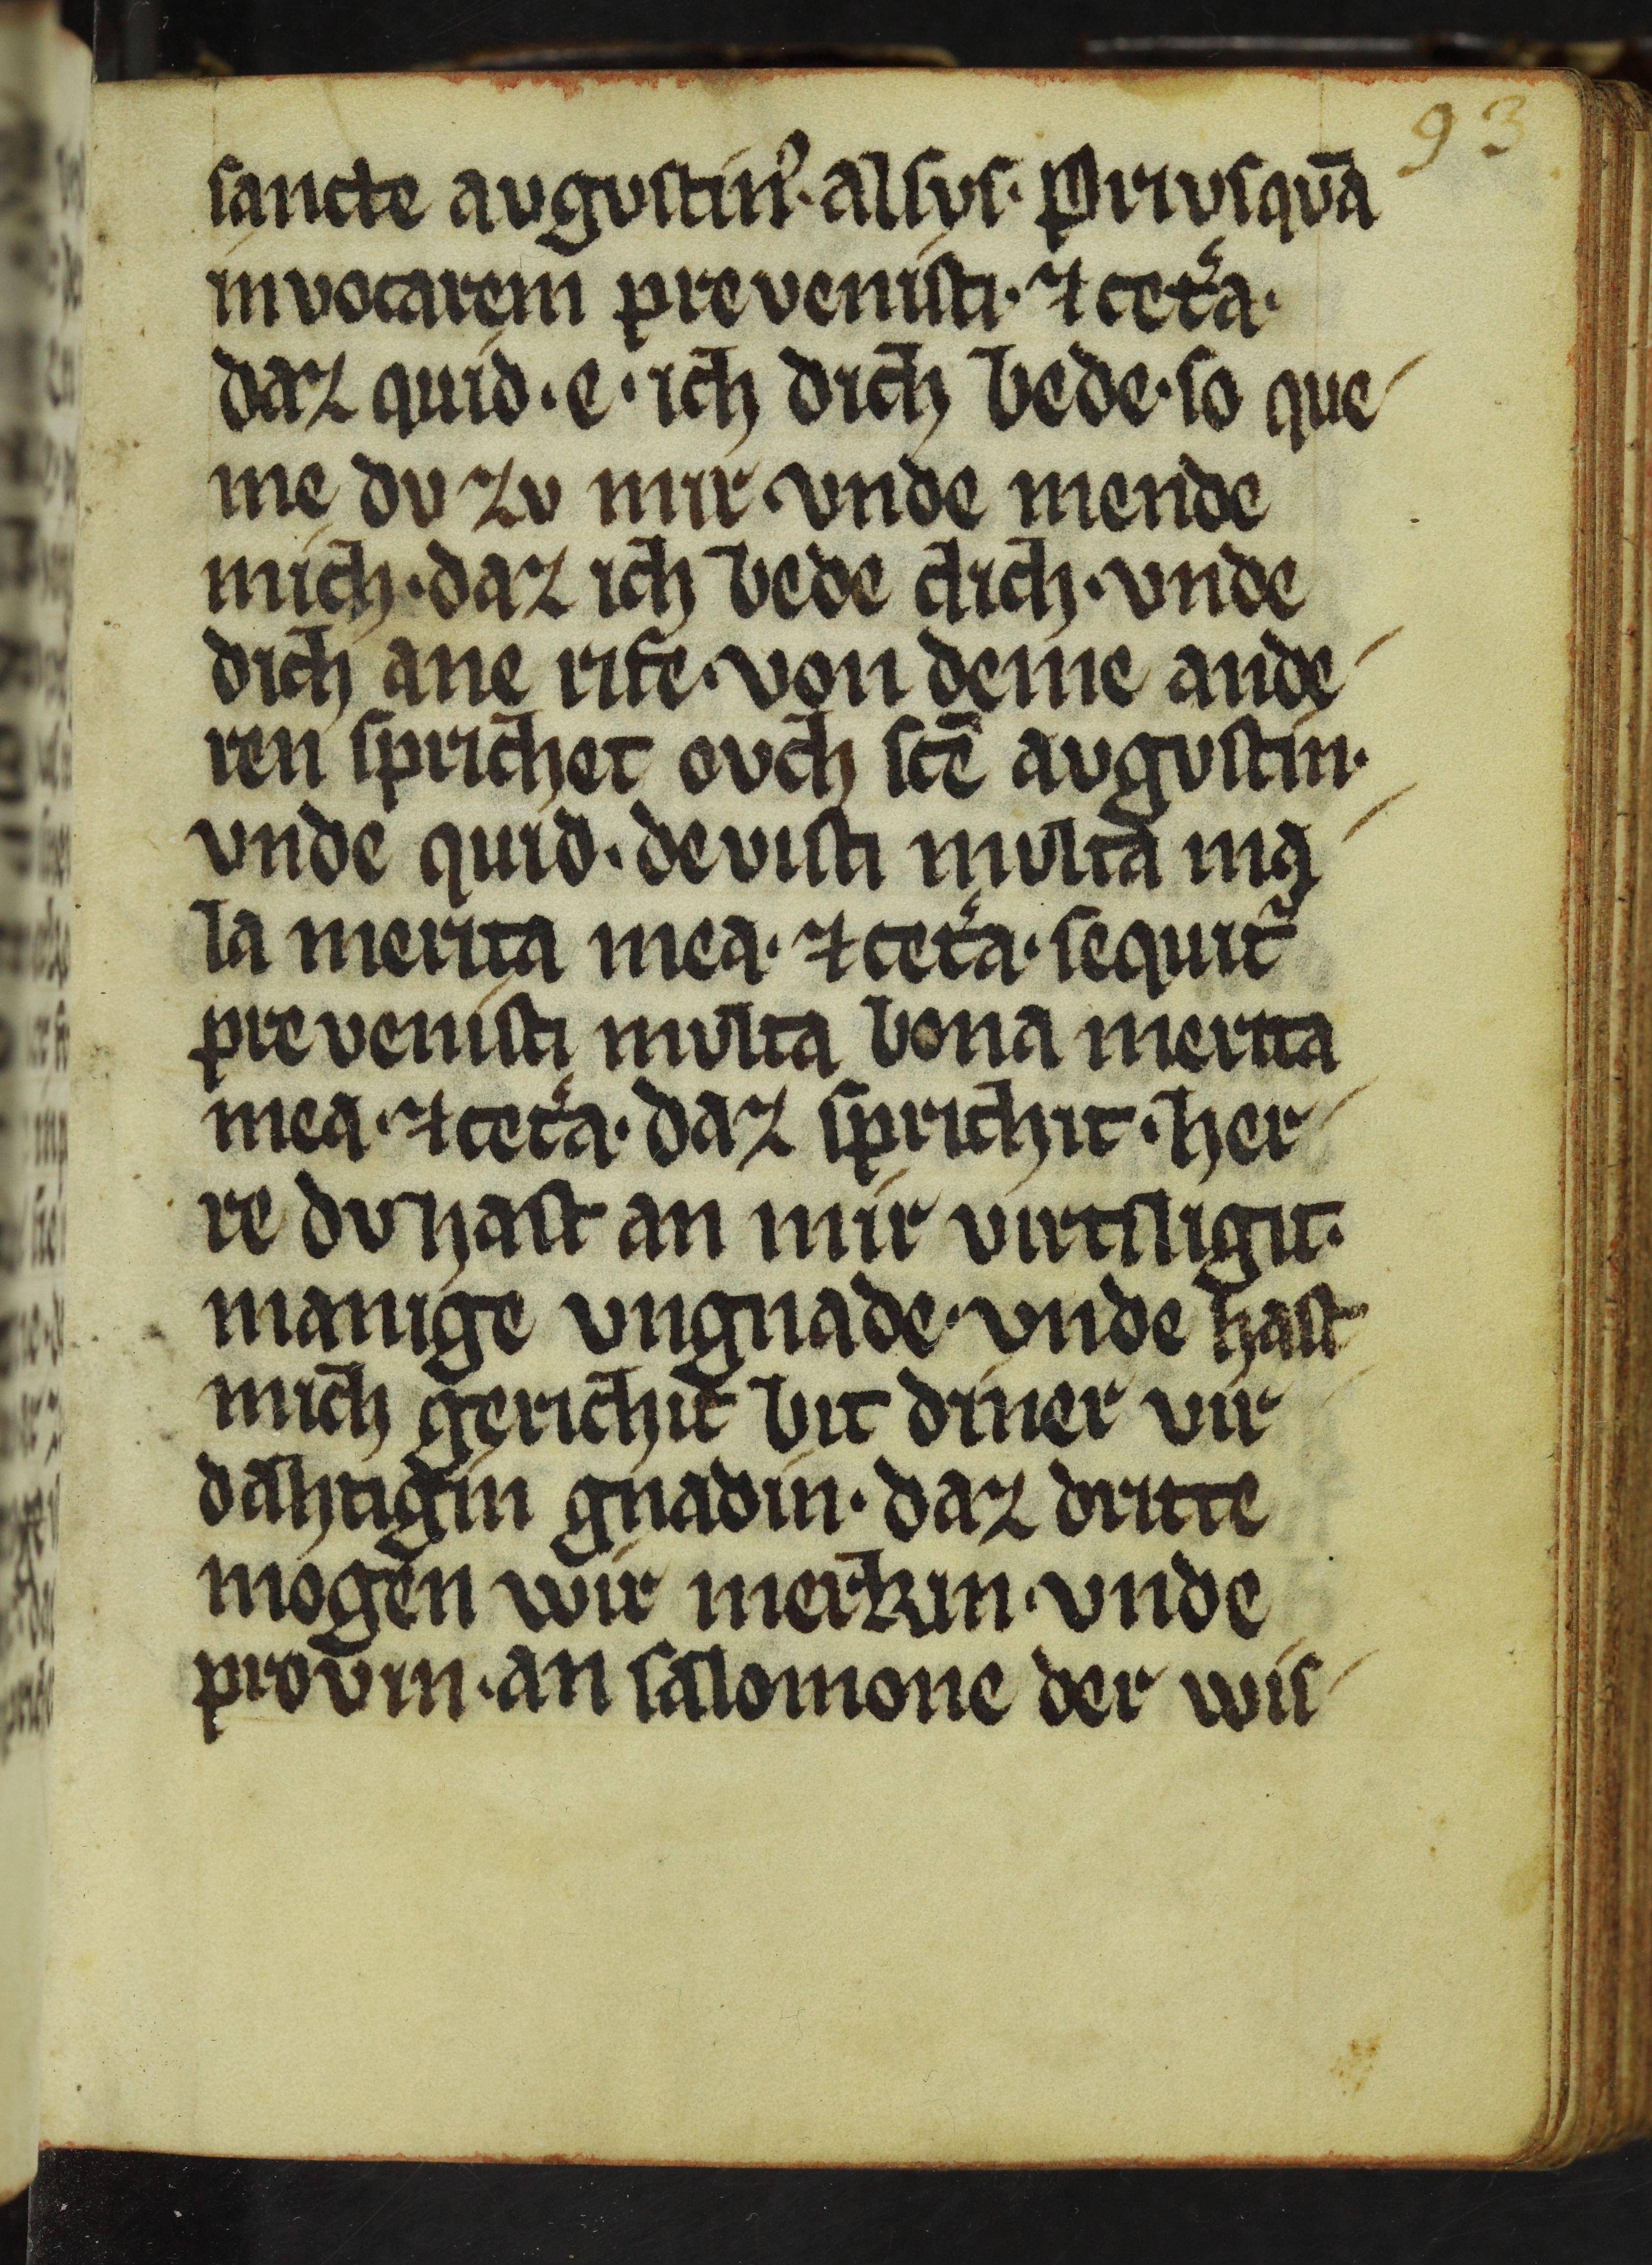 93
sancte avgvstin⁹. alsvs. Privsqvā
invocarem prevenisti. ⁊ cetͬa.
daz quid. e. ich dich bede. so que-
me dv zv mir. vnde mende
mich. daz ich bede dich. vnde
dich ane rife. von deme ande-
ren sprichet ovch scē avgvstin.
vnde quid. devisti mvlta ma-
la merita mea. ⁊ cetͬa. sequit᷑
prevenisti mvlta bona merita
mea. ⁊ cetͬa. daz sprichit. her-
re dv hast an mir virtiligit.
manige vngnade. vnde hast
mich gerichit bit diner vir-
dahtigin gnadin. daz dritte
mogen wir merkin. vnde
provin. an salomone der wis-